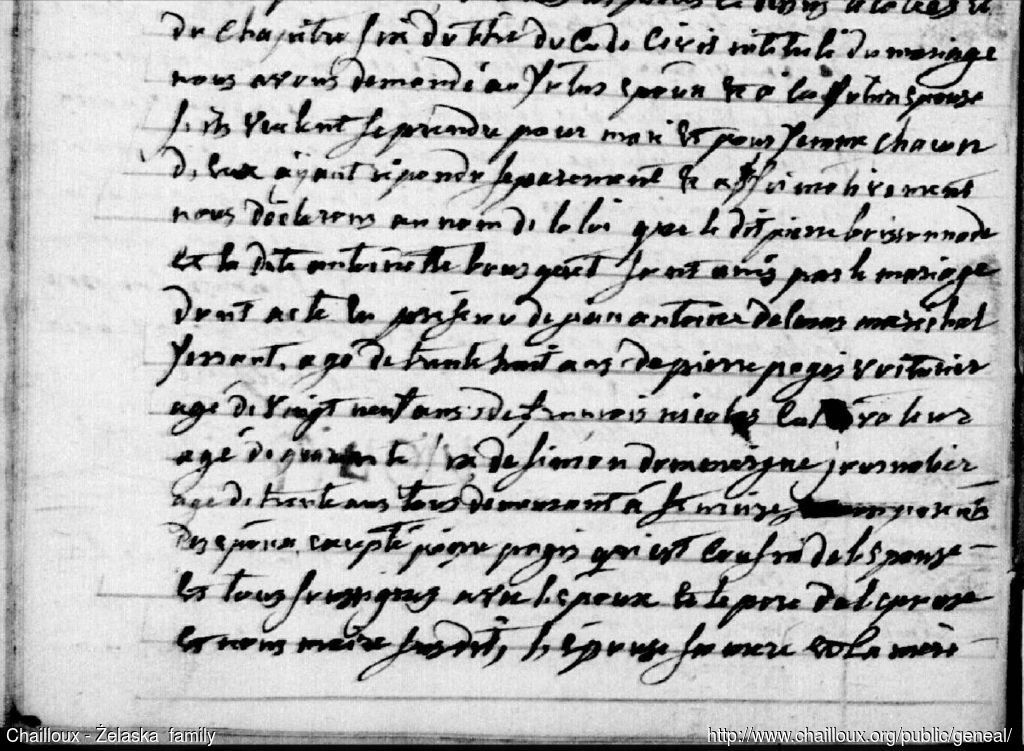 du chapitre six du titre du Code Civil intitulé du mariage
nous avons demandé au futur epoux et a la future epouse
s'ils veulent se prendre pour mari et pour femme chacun
d'eux ayant répondu séparement et affirmativement
nous déclarons au nom de la loi que le dit pierre
et la dite antoinette sont unis par le mariage
dont acte en présence de jean antoine marechal
ferrant, agé de trente huit ans de pierre pagis voiturier
agé de vingt neuf ans de francois nicolas
agé de quarante six de simon journalier
agé de trente ans tous demeurant à
des epoux excepté pierre pagis qui est cousin de l'epouse
et tous soussignés avec l'epoux et le pere de l'epouse
et nous maire susdit, l'épouse sa mere et la mère
Chailloux - Żelaska family
http://www.chailloux.org/public/geneal/